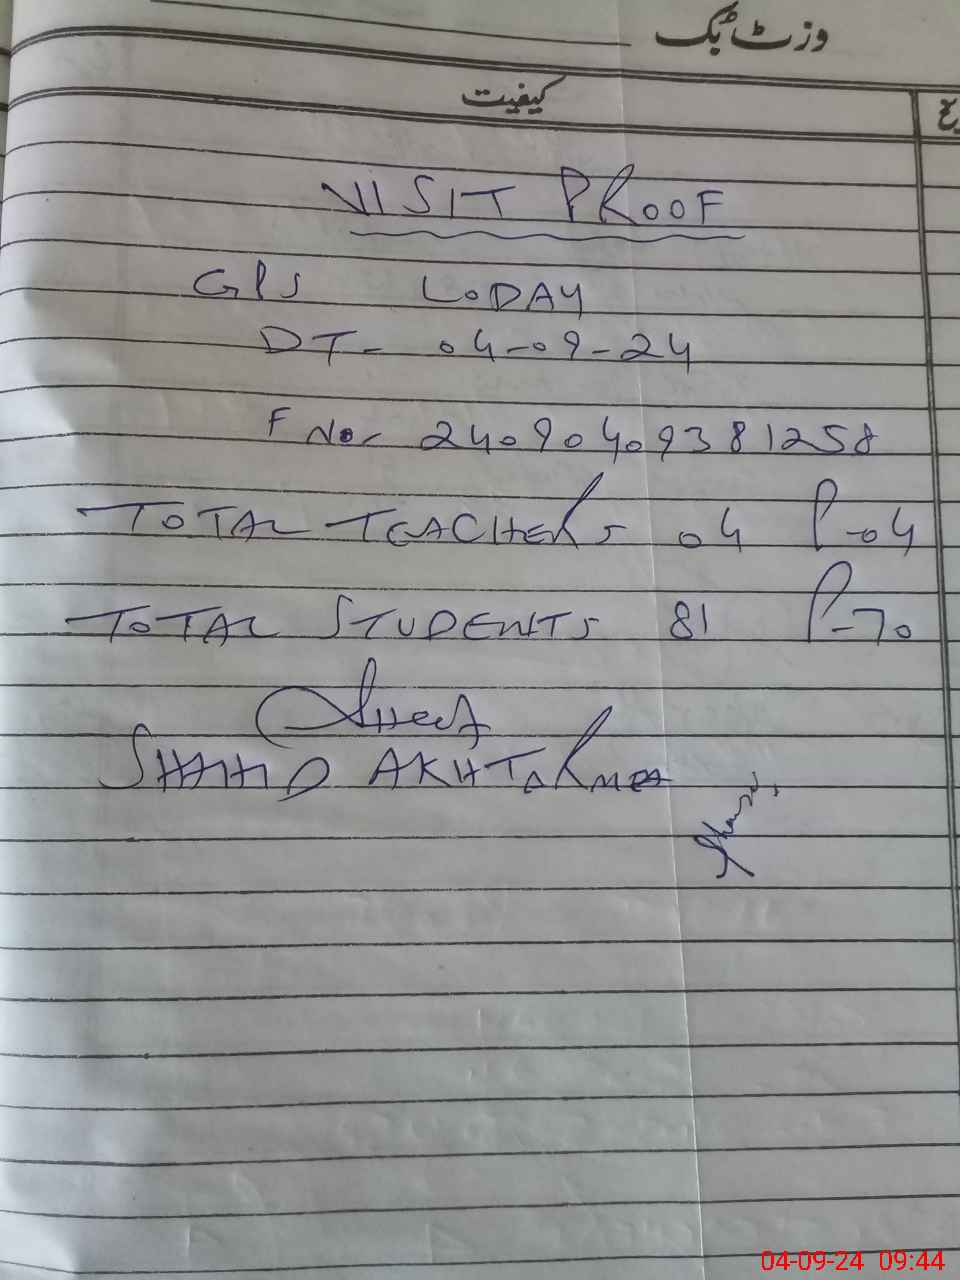 وزٹ بک
کیفیت
VISIT PROOF
GPS LODAY
DT- 04-09-24
F No- 24090409381258
TOTAL TEACHERS 04 P-04
TOTAL STUDENTS 81 P-70
SHAHID AKHTAR MEA
04-09-24 09:44